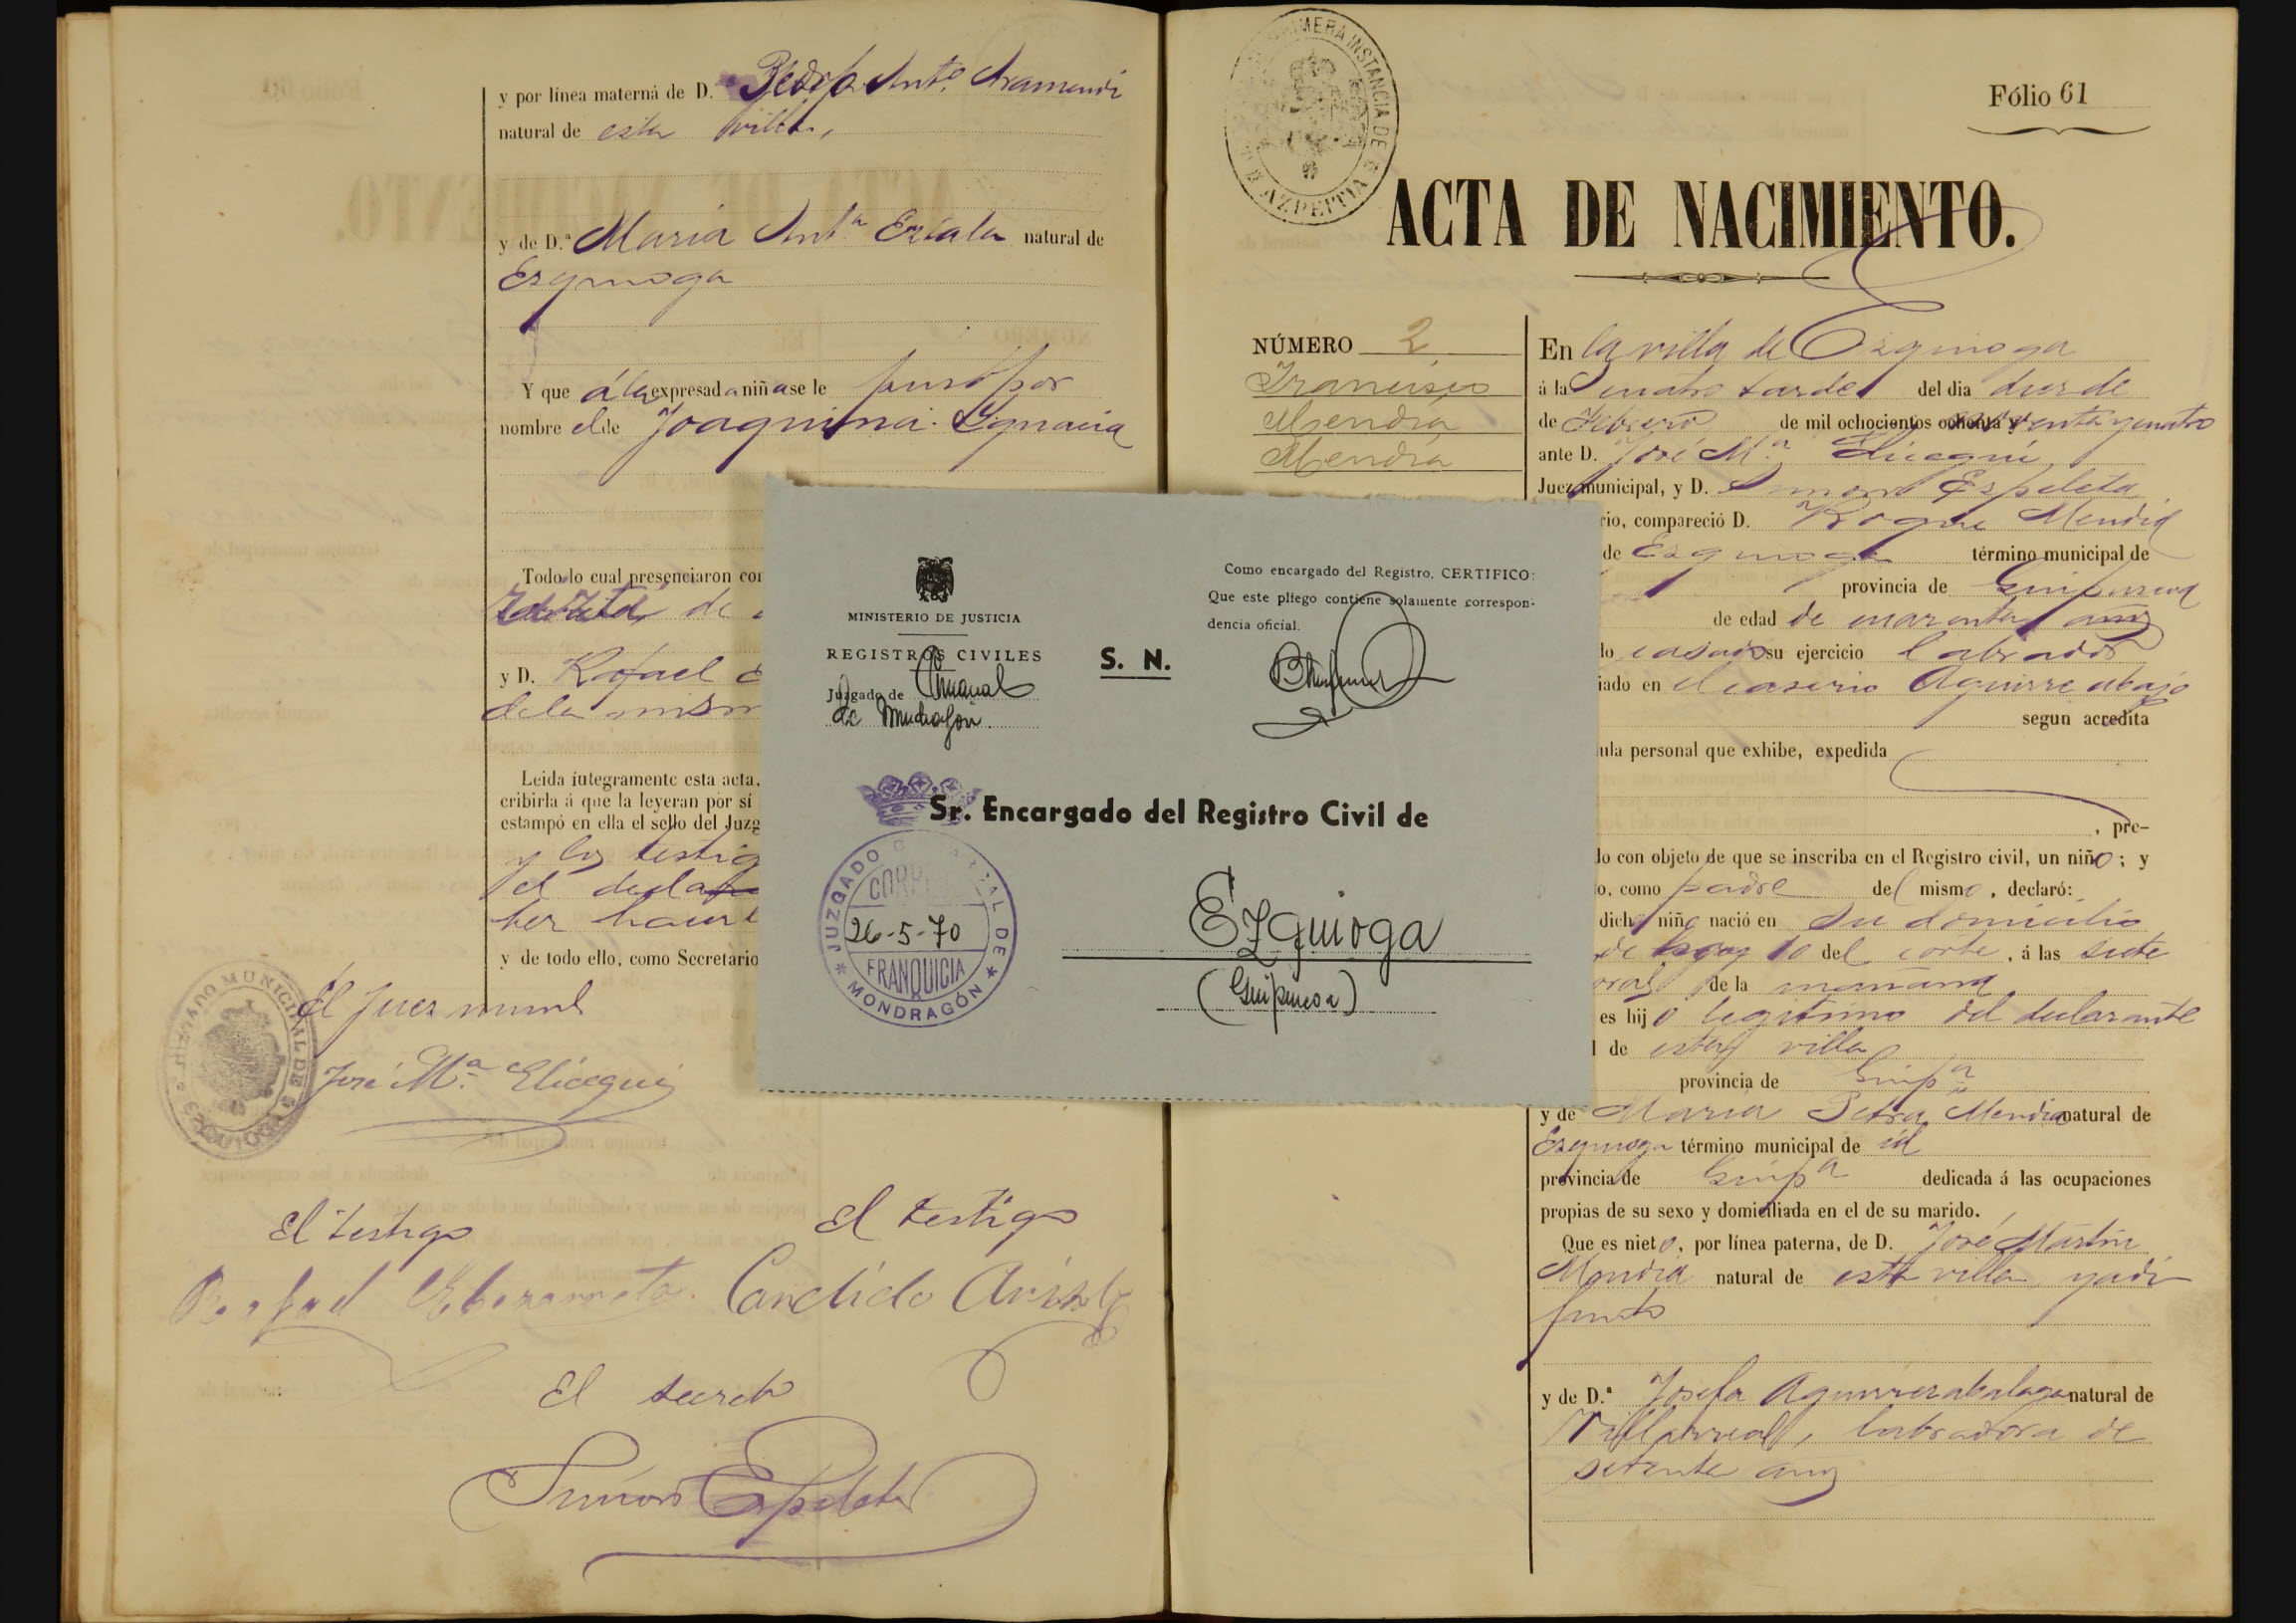 y por línea materna de D. Pedro Ant.º Aramendi
natural de esta villa,
y de D.ª Maria Ant.ª natural de
Ezquioga
Y que á la expresada niña se le puso por
nombre el de Joaquina Ygnacia
Todo lo cual presenciaron co
de
y D. Rafael
de la mism
Leida íntegramente esta acta,
cribirla á que la leyeran por sí
estampó en ella el sello del Juzg
y los testig
el decla
ber hacer
y de todo ello, como Secretario
JUZGADO MUNICIPAL DE EZQUIOGA
El Juez munl
José M.ª Elicegui
El testigo
El testigo
Rafael
Candido
El secreto
Simon Espeleta
PRIMERA INSTANCIA DE AZPEITIA
Fólio 61
ACTA DE NACIMIENTO.
NÚMERO 2
Francisco
Mendia
Mendia
En la villa de Ezquioga
á la cuatro tarde del dia dos de
de Febrero de mil ochocientos ochenta y noventa y cuatro
ante D. José M.ª Elicegui
Juez municipal, y D. Simon Espeleta
rio, compareció D. Roque Mendia
de Ezquioga término municipal de
provincia de Guipuzcoa
de edad de cuarenta años
do casado su ejercicio labrador
iado en el caserio Aguirre abajo
segun acredita
ula personal que exhibe, expedida
, pre-
do con objeto de que se inscriba en el Registro civil, un niño; y
o, como padre del mismo, declaró:
dicho niño nació en su domicilio
de hoy 10 del corte, á las siete
oras de la mañana
es hijo legitimo del declarante
l de esta villa
provincia de Guipª
y de Maria Petra Mendia natural de
Ezquioga término municipal de id
provincia de Guipª dedicada á las ocupaciones
propias de su sexo y domiciliada en el de su marido.
Que es nieto, por línea paterna, de D. José Martin
Mendia natural de esta villa y adi
funto
y de D.ª Josefa Aguirrezabalaga natural de
Villarreal, labradora de
setenta años
MINISTERIO DE JUSTICIA
REGISTROS CIVILES
Juzgado de Comarcal
de Mondragón.
S. N.
Como encargado del Registro, CERTIFICO:
Que este pliego contiene solamente correspon-
dencia oficial.
Sr. Encargado del Registro Civil de
Ezquioga
(Guipuzcoa)
JUZGADO COMARCAL DE MONDRAGÓN
CORREOS
26-5-70
FRANQUICIA